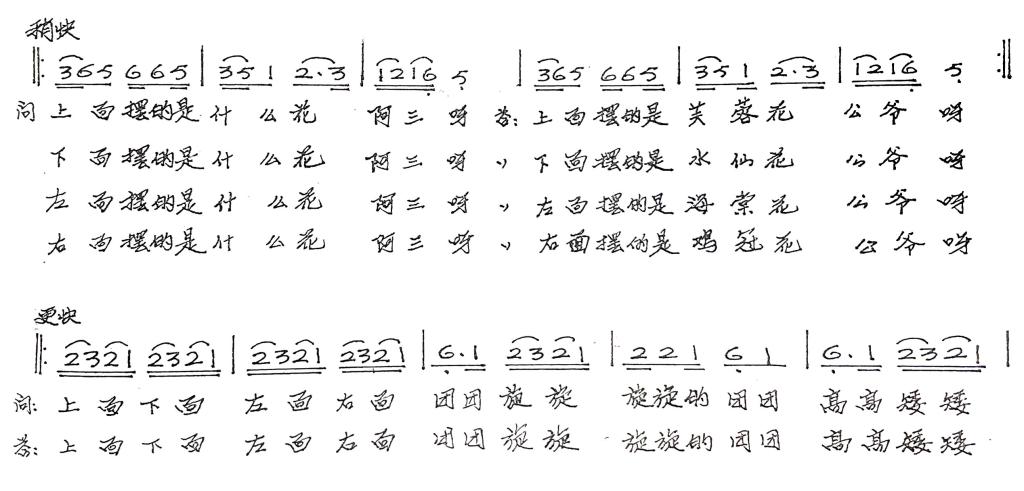 稍快
‖: 365 665 | 351 2·3 | 1216 5 | 365 665 | 351 2·3 | 1216 5 :‖
问 上面摆的是什么花 阿三呀 答: 上面摆的是芙蓉花 公爷呀
下面摆的是什么花 阿三呀 〃 下面摆的是水仙花 公爷呀
左面摆的是什么花 阿三呀 〃 左面摆的是海棠花 公爷呀
右面摆的是什么花 阿三呀 〃 右面摆的是鸡冠花 公爷呀
更快
‖: 2321 2321 | 2321 2321 | 6·1 2321 | 221 61 | 6·1 2321 |
问: 上面下面 左面右面 团团旋旋 旋旋的团团 高高矮矮
答: 上面下面 左面右面 团团旋旋 旋旋的团团 高高矮矮